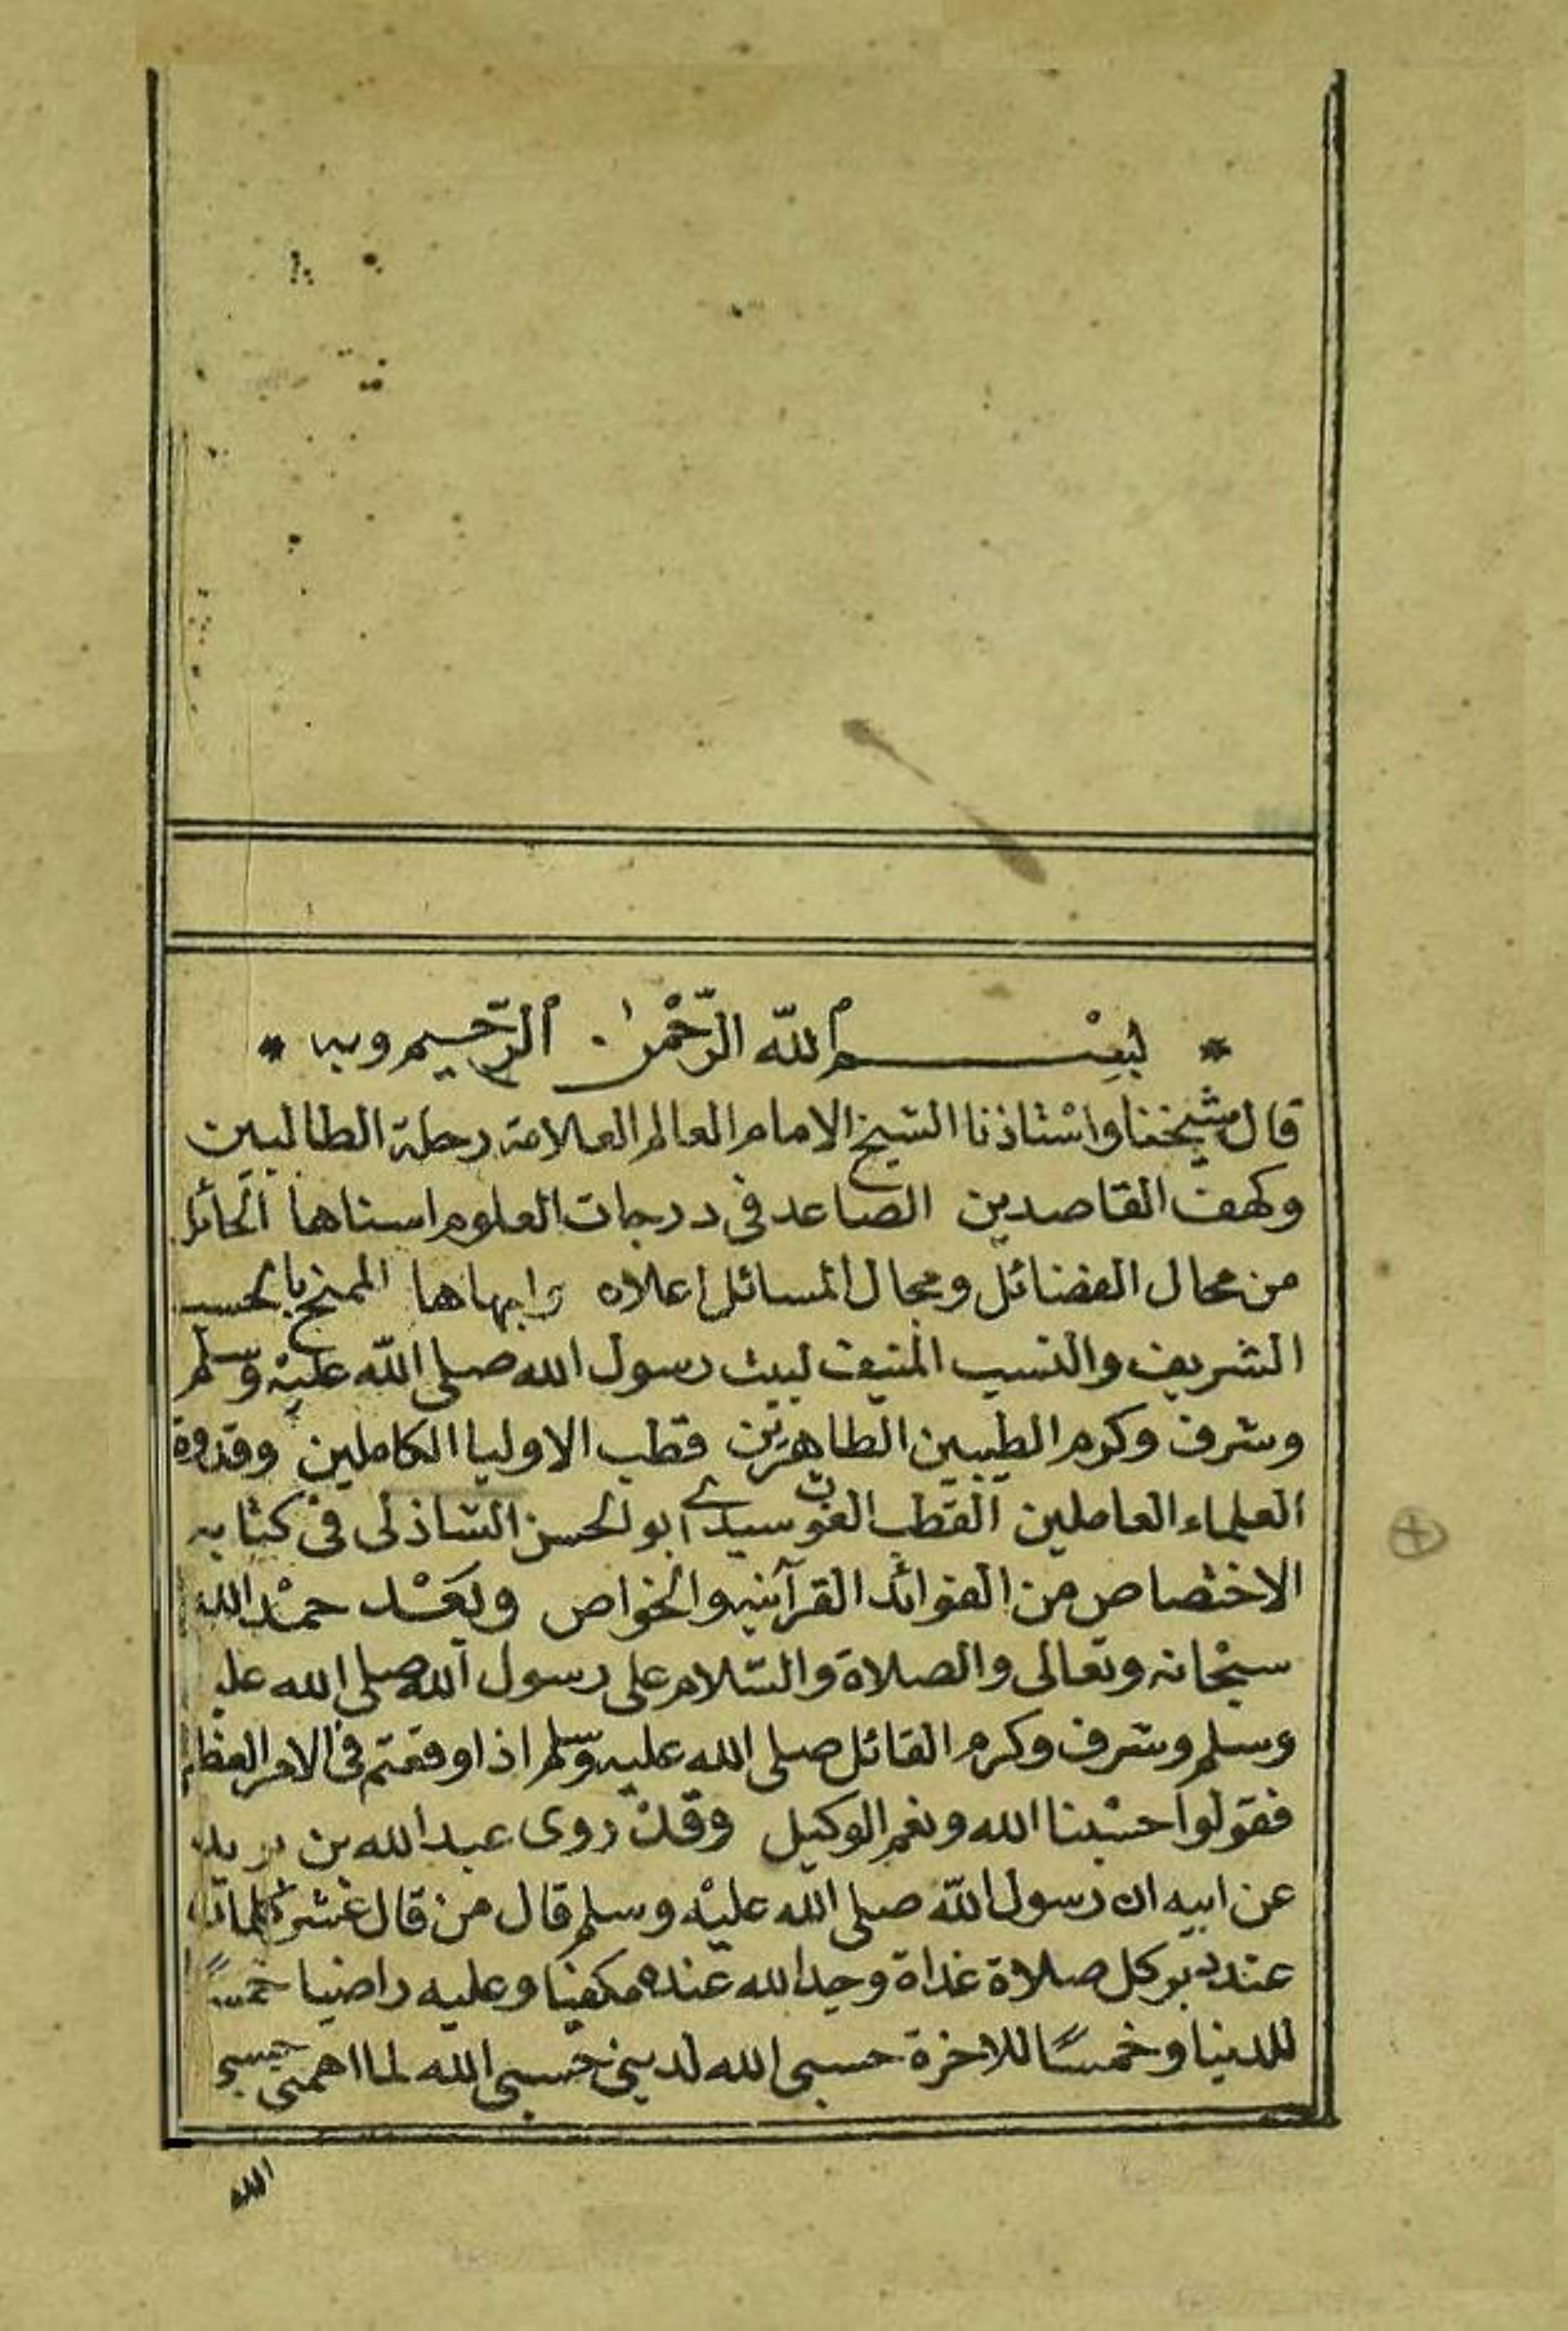 * بسم الله الرحمن الرحيم وبه *
قال شيخنا واستاذنا الشيخ الامام العالم العلامة رحلة الطالبين
وكهف القاصدين الصاعد فى درجات العلوم اسناها الحائز
من محال الفضائل ومجال المسائل اعلاه وابهاها الممنح بالحسب
الشريف والنسب المنيف لبيت رسول الله صلى الله عليه وسلم
وشرف وكرم الطيبين الطاهرين قطب الاوليا الكاملين وقدوة
العلماء العاملين القطب الغوث سيدي ابو الحسن الشاذلى فى كتابه
الاختصاص من الفوائد القرآنيه والخواص وبعد حمد الله
سبحانه وتعالى والصلاة والسلام على رسول الله صلى الله عليه
وسلم وشرف وكرم القائل صلى الله عليه وسلم اذا وقعتم فى الامر العظيم
فقولوا حسبنا الله ونعم الوكيل وقد روى عبد الله بن بريده
عن ابيه ان رسول الله صلى الله عليه وسلم قال من قال عشر كلمات
عند دبر كل صلاة غداة وجد الله عنده مكفيا وعليه راضيا خمسًا
للدنيا وخمسًا للاخرة حسبى الله لدينى حسبى الله لما اهمنى حسبى
الله